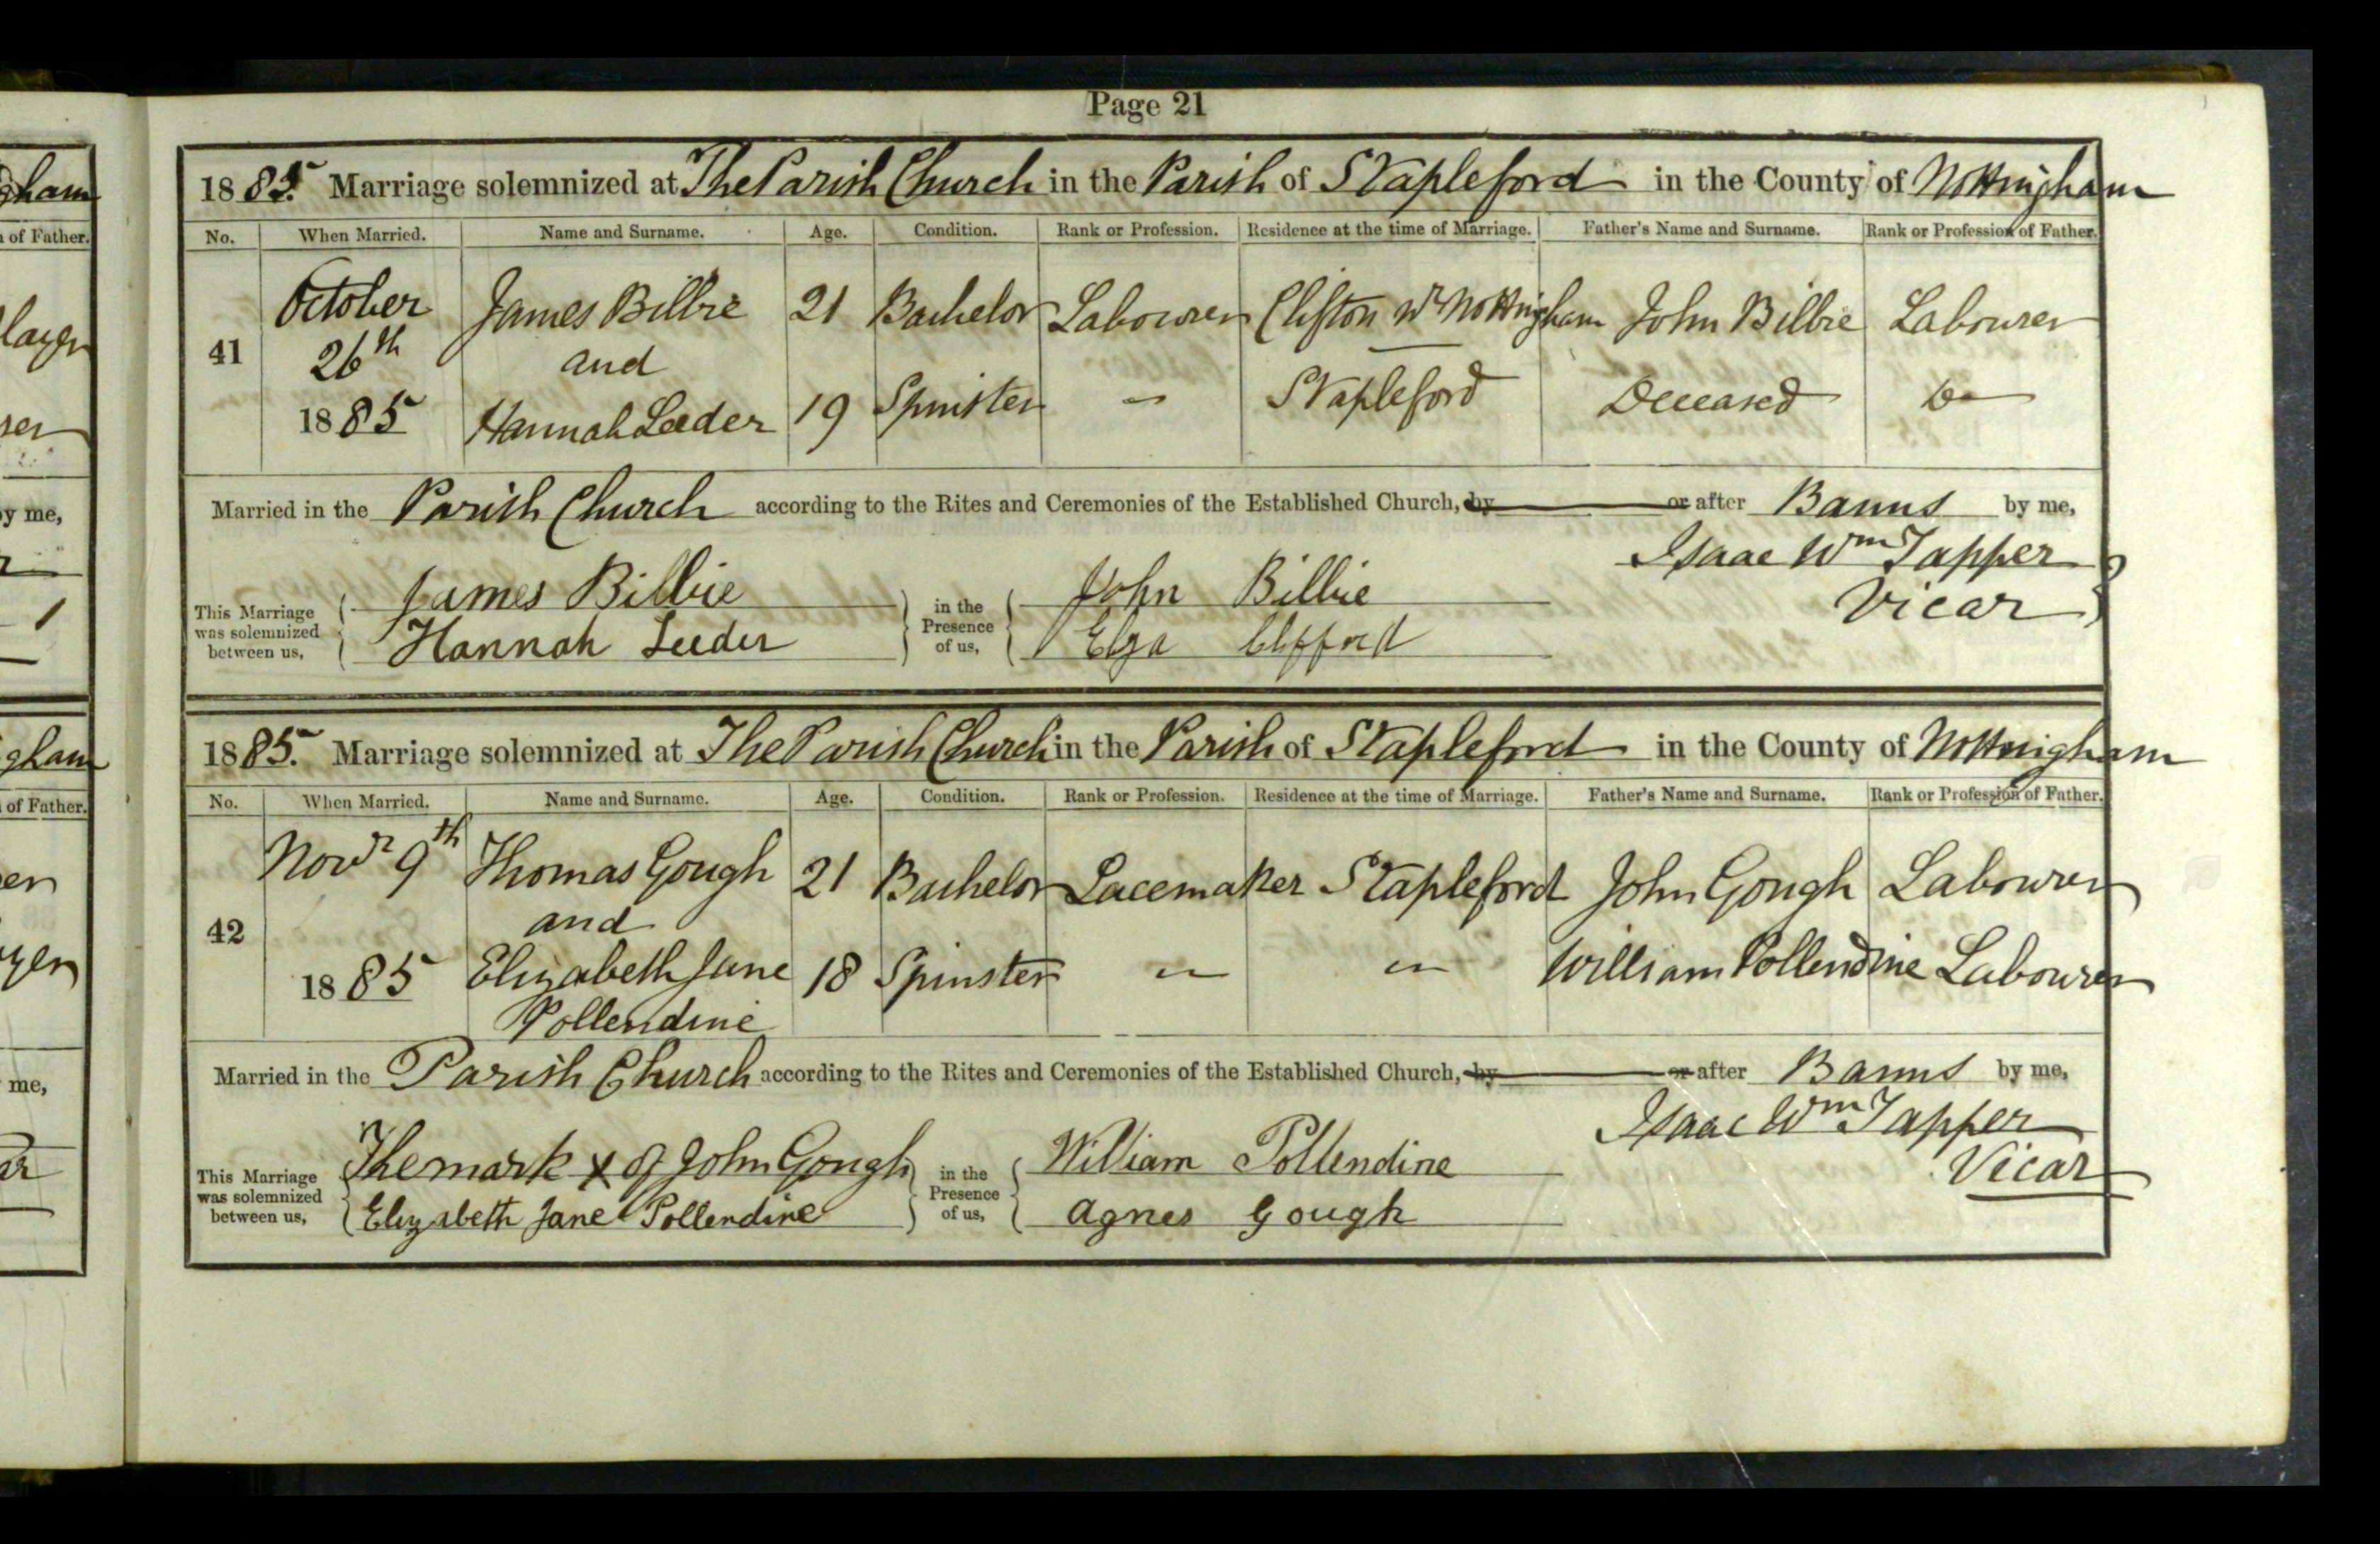 Page 21
1885. Marriage solemnized at The Parish Church in the Parish of Stapleford in the County of Nottingham
No. When Married. Name and Surname. Age. Condition. Rank or Profession. Residence at the time of Marriage. Father's Name and Surname. Rank or Profession of Father.
October James Billbie 21 Bachelor Labourer Clifton Nottingham John Billbie Labourer
41 26th and
1885 Hannah Leeder 19 Spinster — Stapleford Deceased
Married in the Parish Church according to the Rites and Ceremonies of the Established Church, by or after Banns by me,
Isaac Wm Tapper
Vicar
This Marriage was solemnized between us,
James Billbie
Hannah Leeder
in the Presence of us,
John Billbie
Eliza Clifford
1885. Marriage solemnized at The Parish Church in the Parish of Stapleford in the County of Nottingham
No. When Married. Name and Surname. Age. Condition. Rank or Profession. Residence at the time of Marriage. Father's Name and Surname. Rank or Profession of Father.
Novr 9th Thomas Gough 21 Bachelor Lacemaker Stapleford John Gough Labourer
42 and
1885 Elizabeth Jane 18 Spinster — — William Pollendine Labourer
Pollendine
Married in the Parish Church according to the Rites and Ceremonies of the Established Church, by or after Banns by me,
Isaac Wm Tapper
Vicar
This Marriage was solemnized between us,
The mark x of John Gough
Elizabeth Jane Pollendine
in the Presence of us,
William Pollendine
Agnes Gough
gham
of Father.
layer
rer
by me,
gham
of Father.
me,